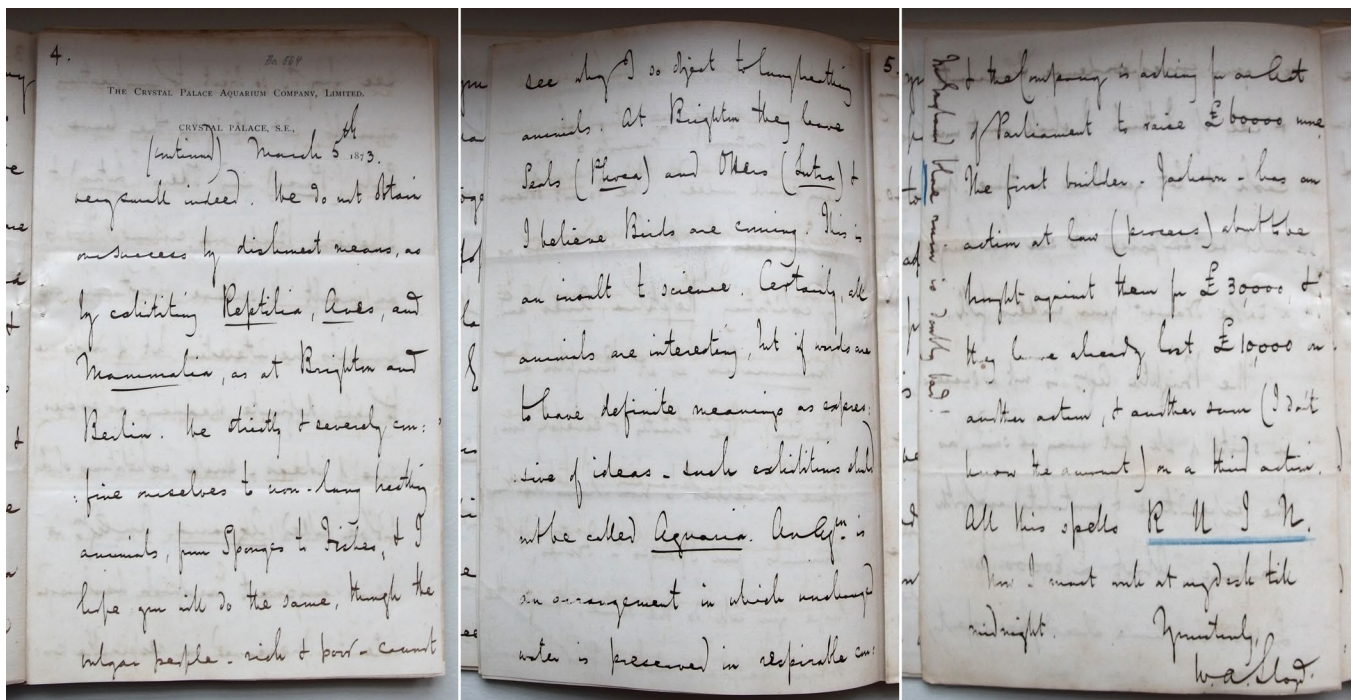 4.
Bn 569
THE CRYSTAL PALACE AQUARIUM COMPANY, LIMITED.
CRYSTAL PALACE, S.E.,
(continued) March 5th 1873.
very small indeed. We do not obtain
our success by dishonest means, as
by exhibiting Reptilia, Aves, and
Mammalia, as at Brighton and
Berlin. We strictly & severely con:
:fine ourselves to non-lung breathing
animals, from Sponges to Fishes, & I
hope you will do the same, though the
vulgar people - rich & poor - cannot
see why I so object to lung breathing
animals. At Brighton they have
Seals (Phoca) and Otters (Lutra) &
I believe Birds are coming. This is
an insult to science. Certainly, all
animals are interesting, but if words are
to have definite meanings as expres:
:sive of ideas - such exhibitions should
not be called Aquaria. An Aqm. is
an arrangement in which unchanged
water is preserved in respirable con:
5.
& the Company is asking for an Act
of Parliament to raise £60000 more
The first builder - Jackson - has an
action at law (process) about to be
brought against them for £30,000, &
they have already lost £10,000 on
another action, & another sum (I don't
know the amount) on a third action.
All this spells R U I N.
Now I must work at my desk till
midnight. Yours truly,
W. A. Lloyd.
ruin is doubly bad!